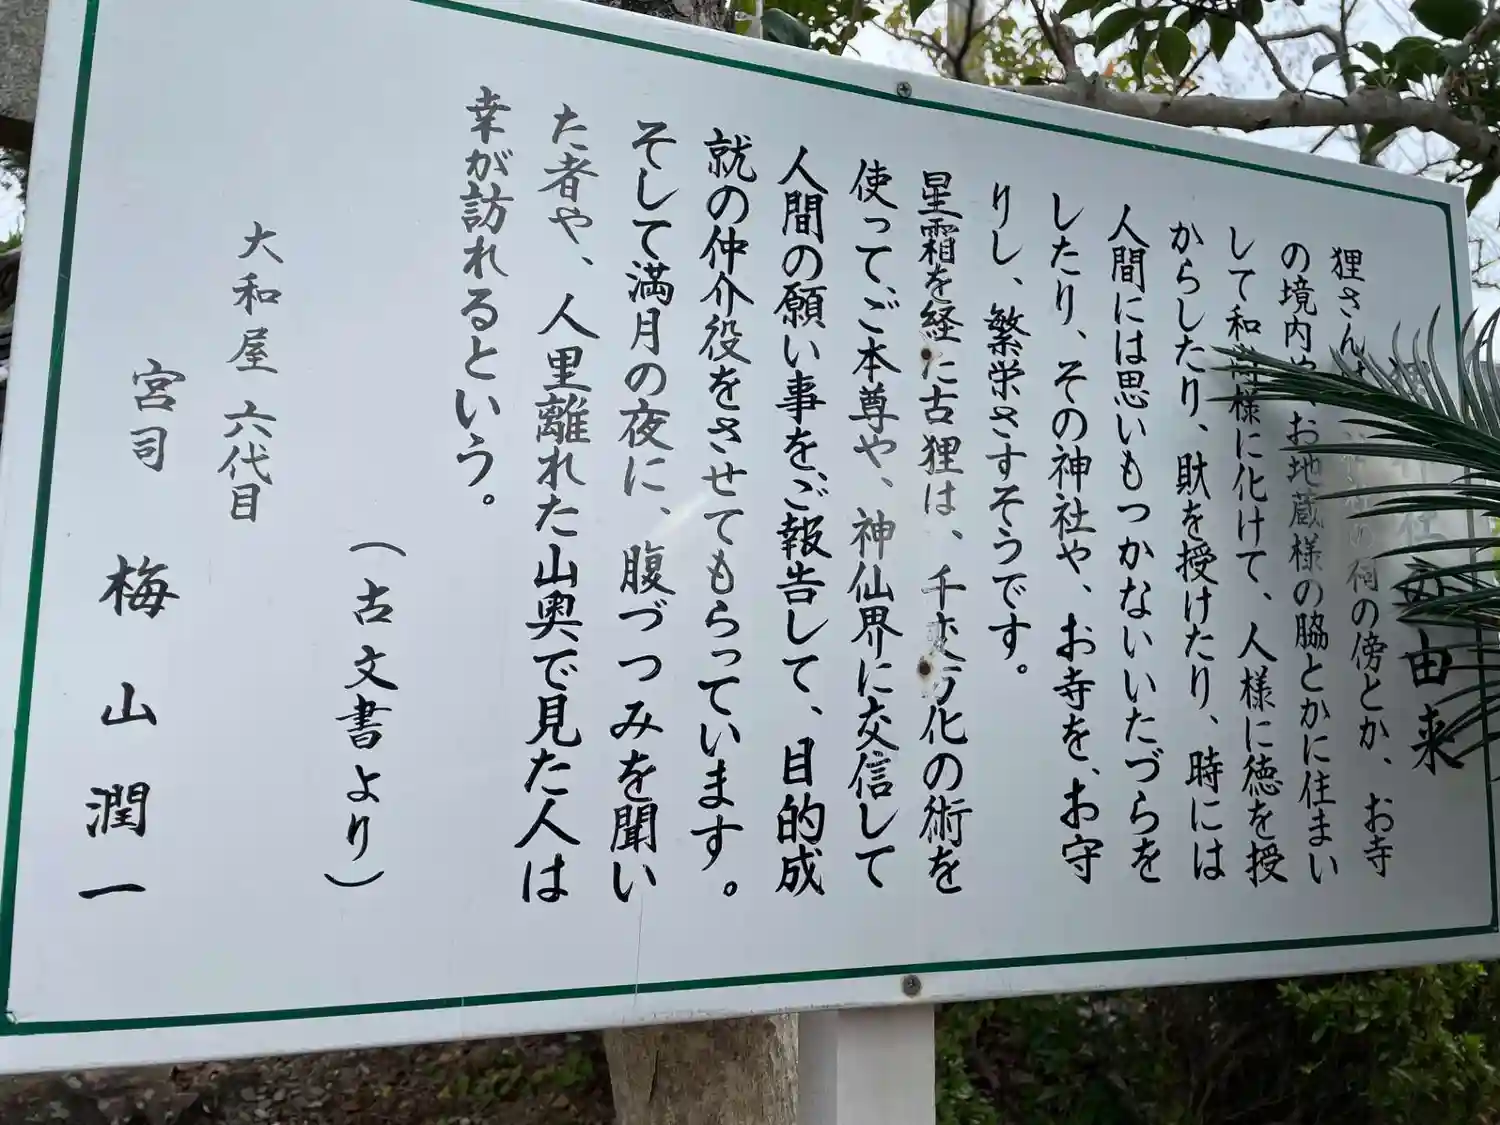 の由来
狸さんは の祠の傍とか、お寺
の境内や、お地蔵様の脇とかに住まい
して和尚様に化けて、人様に徳を授
からしたり、財を授けたり、時には
人間には思いもつかないいたづらを
したり、その神社や、お寺を、お守
りし、繁栄さすそうです。
星霜を経た古狸は、千変万化の術を
使って、ご本尊や、神仙界に交信して
人間の願い事を、ご報告して、目的成
就の仲介役をさせてもらっています。
そして満月の夜に、腹づつみを聞い
た者や、人里離れた山奥で見た人は
幸が訪れるという。
（古文書より）
大和屋 六代目
宮司 梅山潤一